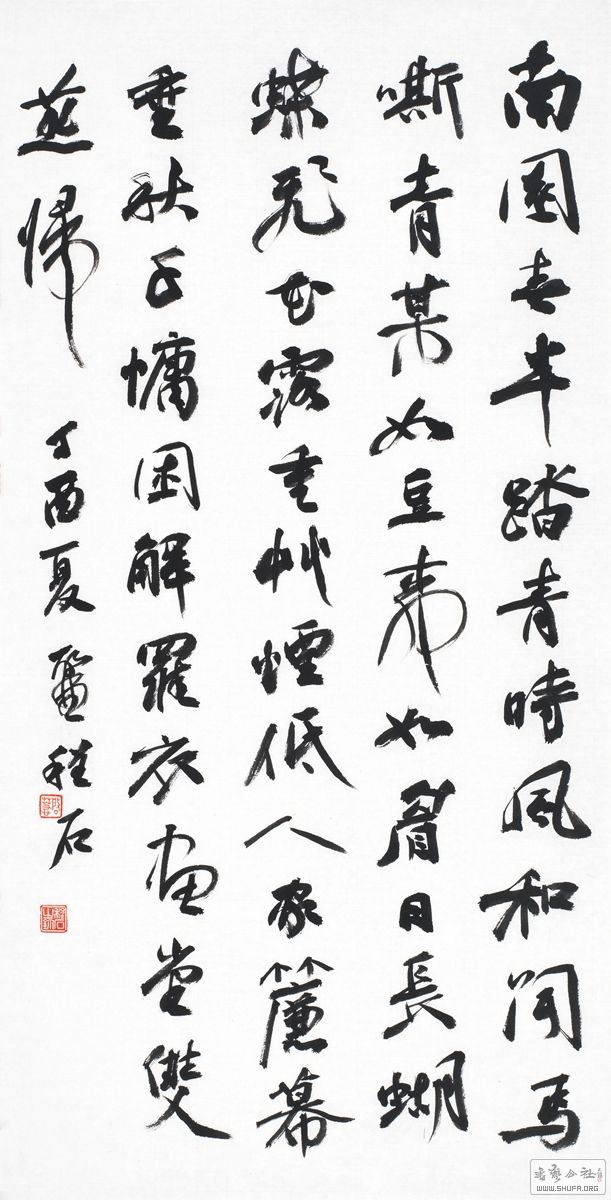 南園春半踏青時風和闻馬
嘶青某如豆如眉日長蝴
蝶飛花露重艸煙低人家簾幕
垂秋千慵困解羅衣畫堂雙
燕歸
丁酉夏程石
书法公社
WWW.SHUFA.ORG